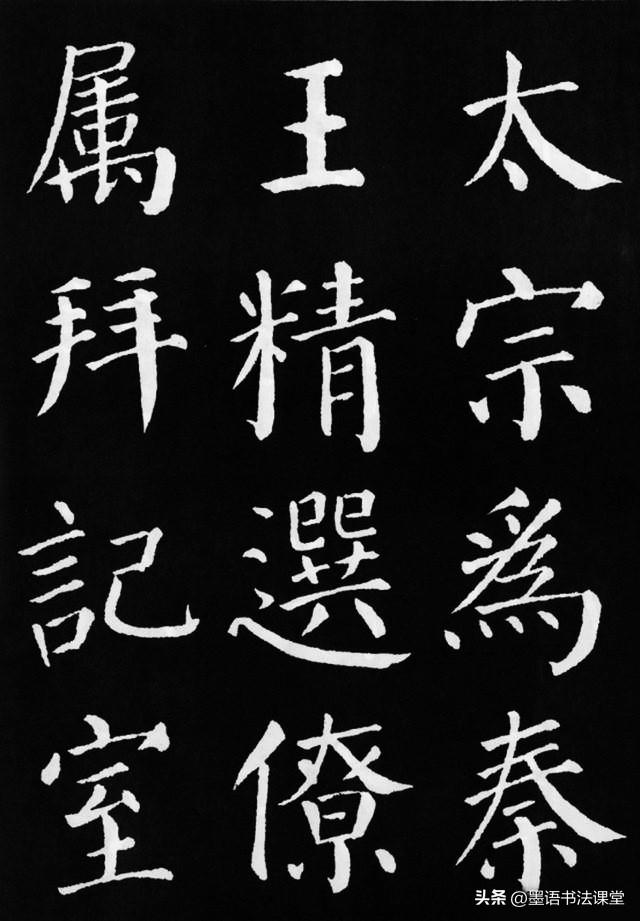 太宗為秦
王精選僚
属拜記室
头条 @墨语书法课堂